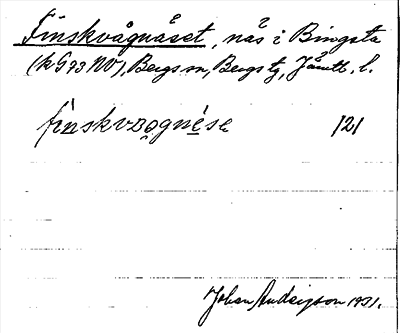 Finskvågnåset, näs i Bingsta
(k G 93 NV), Bergs sn, Bergs tg, Jämtl. l.
finskvågnése 121
Johan Andersson 1931.